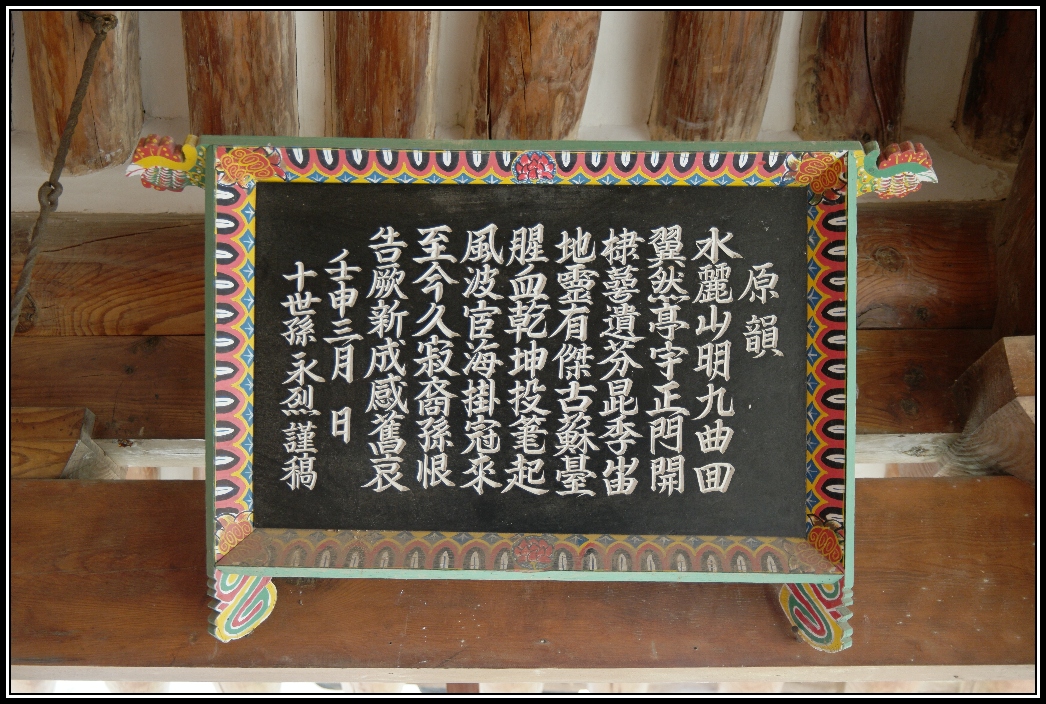 原韻
水麗山明九曲囬
翼然亭宇正門開
棣萼遺芬昆季出
地靈有傑古蘇臺
腥血乾坤投笔起
風波宦海掛冠來
至今久寂裔孫恨
告厥新成感舊哀
壬申三月 日
十世孫 永烈 謹稿